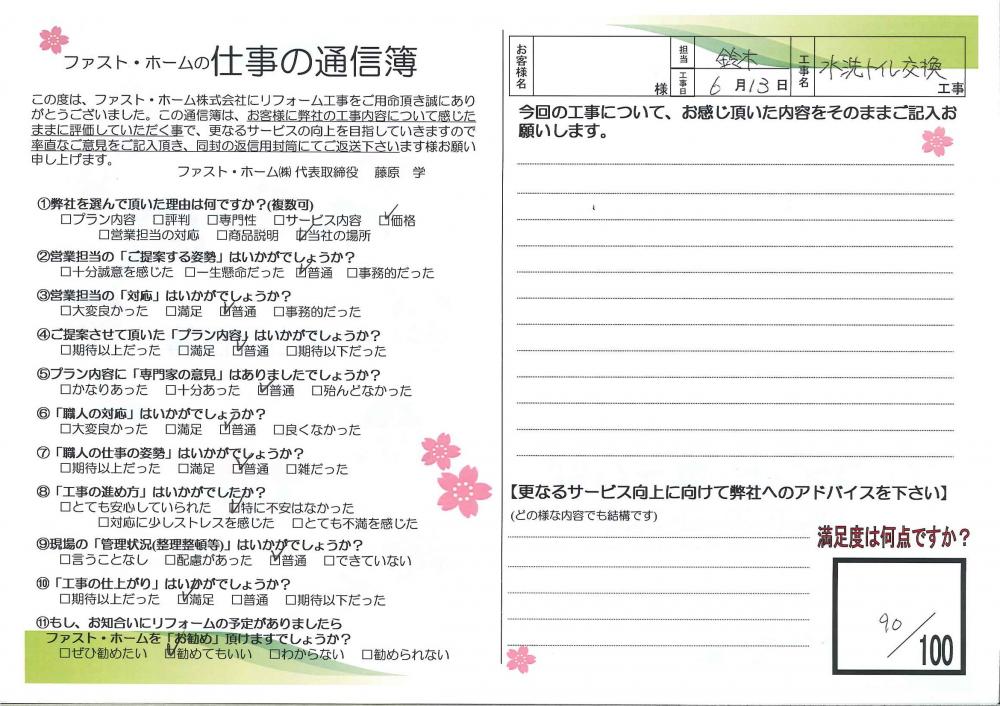 ファスト・ホームの仕事の通信簿
この度は、ファスト・ホーム株式会社にリフォーム工事をご用命頂き誠にあり
がとうございました。この通信簿は、お客様に弊社の工事内容について感じた
ままに評価していただく事で、更なるサービスの向上を目指していきますので
率直なご意見をご記入頂き、同封の返信用封筒にてご返送下さいます様お願い
申し上げます。
ファスト・ホーム㈱ 代表取締役 藤原 学
①弊社を選んで頂いた理由は何ですか?(複数可)
□プラン内容 □評判 □専門性 □サービス内容 ☑価格
□営業担当の対応 □商品説明 ☑当社の場所
②営業担当の「ご提案する姿勢」はいかがでしょうか?
□十分誠意を感じた □一生懸命だった ☑普通 □事務的だった
③営業担当の「対応」はいかがでしょうか?
□大変良かった □満足 ☑普通 □事務的だった
④ご提案させて頂いた「プラン内容」はいかがでしょうか?
□期待以上だった □満足 ☑普通 □期待以下だった
⑤プラン内容に「専門家の意見」はありましたでしょうか?
□かなりあった □十分あった ☑普通 □殆んどなかった
⑥「職人の対応」はいかがでしょうか?
□大変良かった □満足 ☑普通 □良くなかった
⑦「職人の仕事の姿勢」はいかがでしょうか?
□期待以上だった □満足 ☑普通 □雑だった
⑧「工事の進め方」はいかがでしたか?
□とても安心していられた ☑特に不安はなかった
□対応に少しストレスを感じた □とても不満を感じた
⑨現場の「管理状況(整理整頓等)」はいかがでしょうか?
□言うことなし □配慮があった ☑普通 □できていない
⑩「工事の仕上がり」はいかがでしょうか?
□期待以上だった ☑満足 □普通 □期待以下だった
⑪もし、お知合いにリフォームの予定がありましたら
ファスト・ホームを「お勧め」頂けますでしょうか?
□ぜひ勧めたい ☑勧めてもいい □わからない □勧められない
お客様名 様 担当 鈴木 工事日 6月13日 工事名 水洗トイレ交換 工事
今回の工事について、お感じ頂いた内容をそのままご記入お
願いします。
【更なるサービス向上に向けて弊社へのアドバイスを下さい】
(どの様な内容でも結構です)
満足度は何点ですか?
90/100